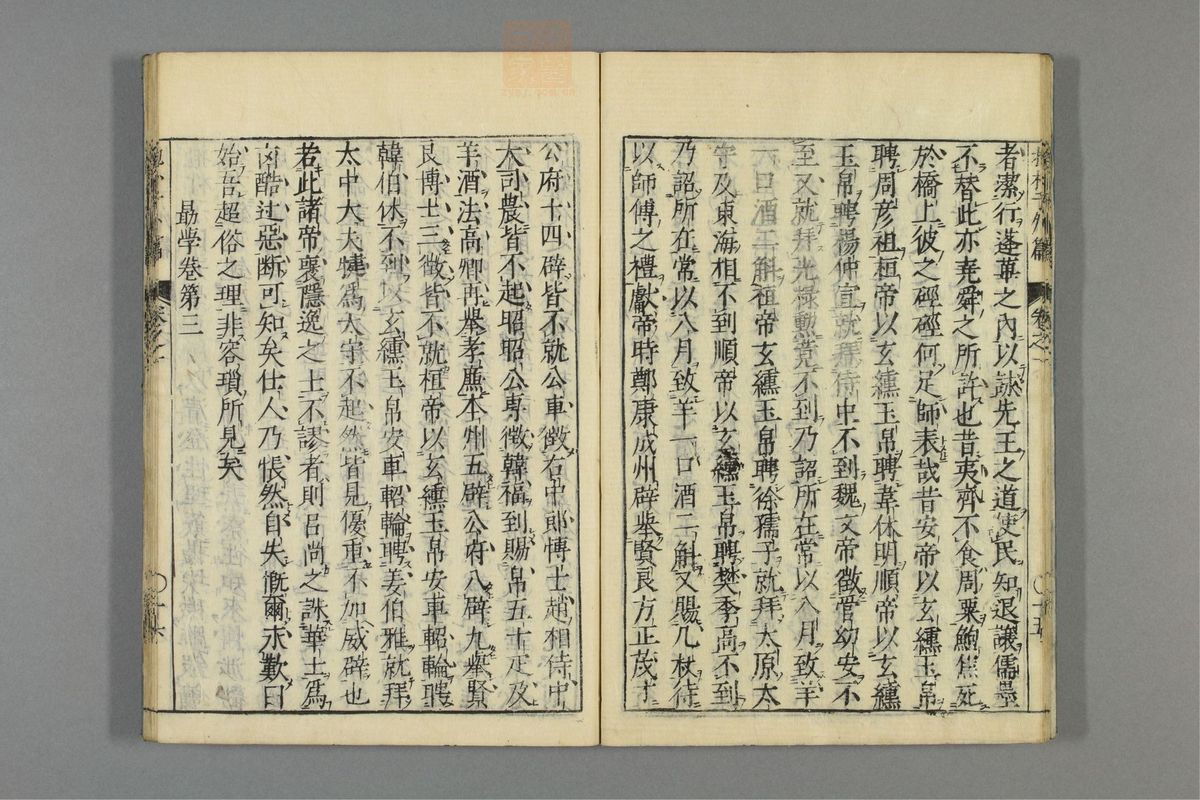 者潔行蓬蓽之內以詠先王之道使民知退讓儒墨
不替此亦堯舜之所許也昔夷齊不食周粟鮑焦死
於橋上彼之硜硜何足師表哉昔安帝以玄纁玉帛
聘周彥祖桓帝以玄纁玉帛聘韋休明順帝以玄纁
玉帛聘楊仲宣就拜侍中不到魏文帝徵管幼安不
至又就拜光祿勳竟不到乃詔所在常以八月致羊
一口酒二斛桓帝玄纁玉帛聘徐孺子就拜太原太
守及東海相不到順帝以玄纁玉帛聘樊季高不到
乃詔所在常以八月致羊一口酒二斛又賜几杖待
以師傅之禮獻帝時鄭康成州辟舉賢良方正茂才
公府十四辟皆不就公車徵右中郎博士趙相侍中
大司農皆不起昭昭公專徵韓福到賜帛五十疋及
羊酒法高卿再舉孝廉本州五辟公府八辟九舉賢
良博士三徵皆不就桓帝以玄纁玉帛安車軺輪聘
韓伯休不到以玄纁玉帛安車軺輪聘姜伯雅就拜
太中大夫犍爲太守不起然皆見優重不加威辟也
若此諸帝褒隱逸之士不謬者則呂尚之誅華士爲
凶酷过惡断可知矣仕人乃悵然自失慨爾永歎曰
始吾超俗之理非容瑣所見矣
勗学卷第三
卷之一
卷之一
〇十五
〇十六